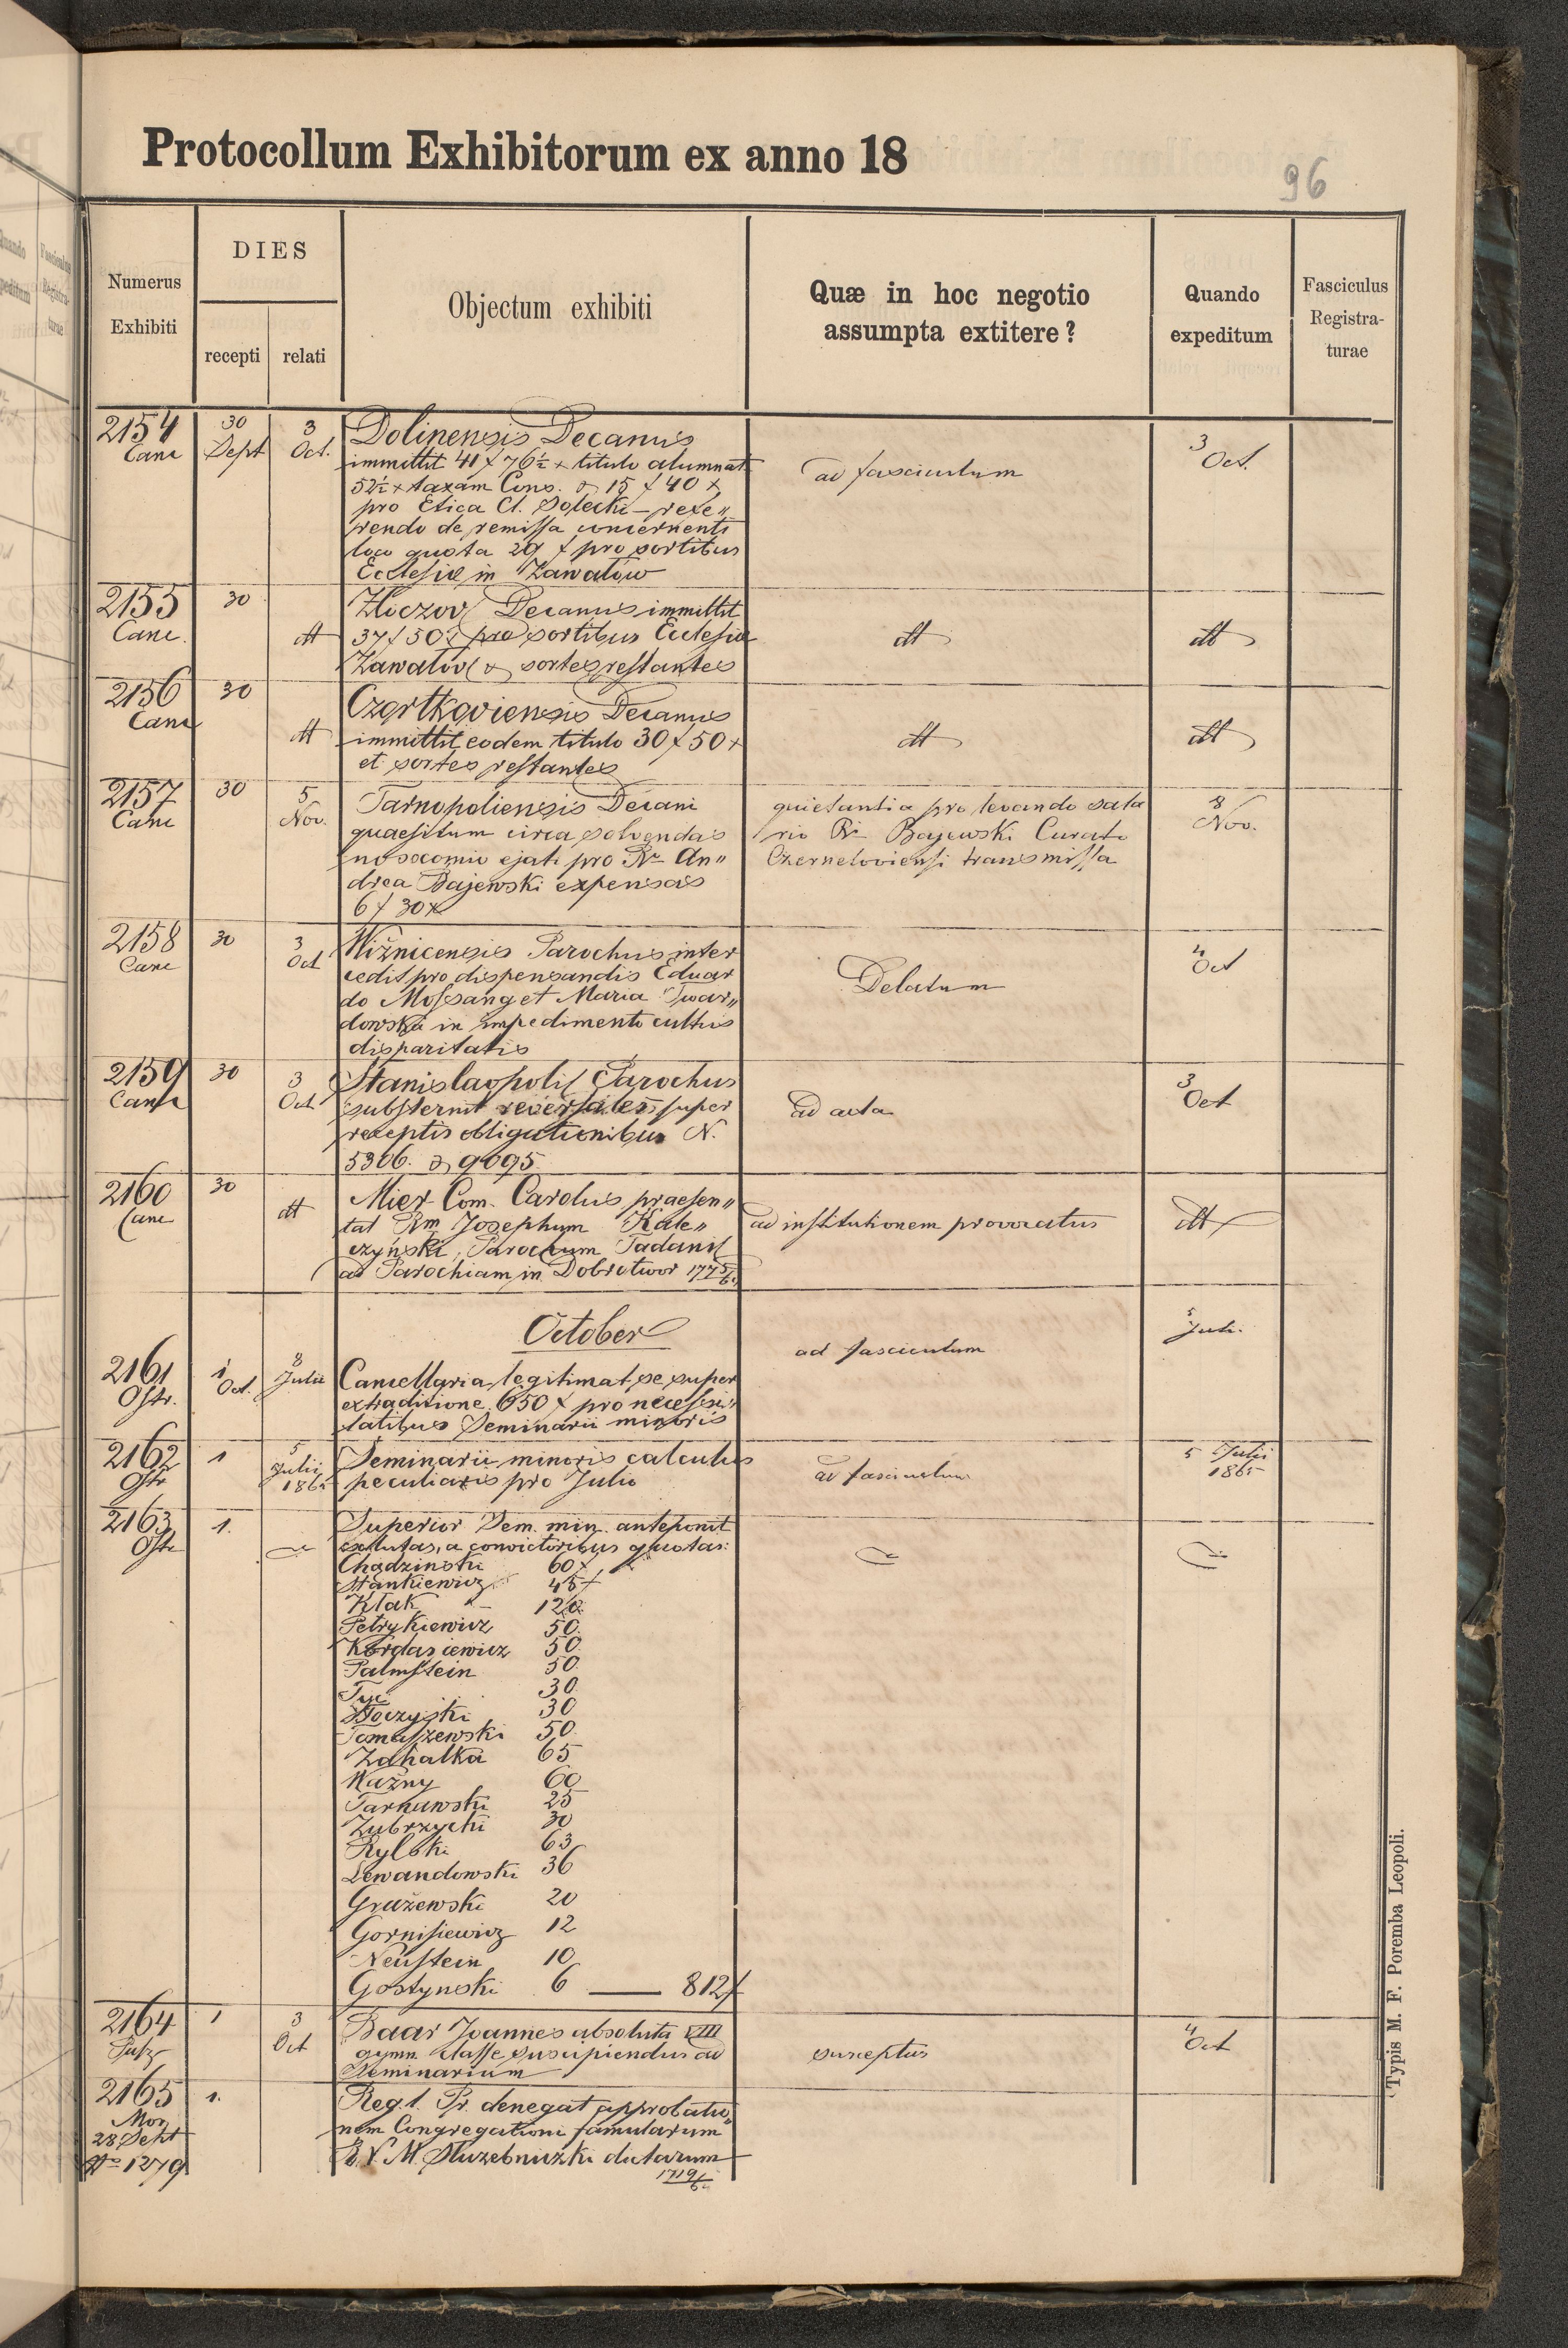 Protocollum Exhibitorum ex anno 18
96
Numerus Exhibiti
DIES
recepti relati
Objectum exhibiti
Quæ in hoc negotio assumpta extitere?
Quando expeditum
Fasciculus Registra-turae
2154 Canc
30 Sept
3 Oct.
Dolinensis Decanus
immittit 41 f 76½ x titulo alumnat
52½ x taxam Cons. & 15 f 40 x
pro Etica Cl. Solecki – refe„
rendo de remissa concernenti
loco quota 29 f pro sortibus
Ecclesiæ in Zawałów
ad fasciculum
3 Oct.
2155 Canc.
30
dtt
Złoczov Decanus immittit
37 f 50 x pro sortibus Ecclesiæ
Zawałov & sortes restantes
dtt
dtt
2156 Canc
30
dtt
Czortkoviensis Decanus
immittit eodem titulo 30 f 50 x
et sortes restantes
dtt
dtt
2157 Canc
30
5 Nov.
Tarnopoliensis Decani
quaesitum circa solvendas
nosocomio ejati pro Rr. An„
drea Bajewski expensas
6 f 30 x
quietantia pro levando sala
rio Rr Bajewski Curato
Czerneloviensi transmissa
8 Nov.
2158 Canc
30
3 Oct
Wižnicensis Parochus inter
cedit pro dispensandis Eduar
do Mossang et Maria Twar„
dowska in impedimento cultus
disparitatis
Delatum
4 Oct
2159 Canc
30
3 Oct
Stanislaopolis Parochus
substernit reversales super
receptis obligationibus N.
5306. & 9095.
ad acta
3 Oct
2160 Canc
30
dtt
Mier Com. Carolus praesen„
tat Rm Josephum Kale„
czyński, Parochum Tadanis
ad Parochiam in Dobrotwor
ad institutionem provocatus
dtt
October
2161 Ostr.
1 Oct.
8 Julii
Cancellaria legitimat se super
extraditione 650 f pro necessi„
tatibus Seminarii minoris
ad fasciculum
5 Juli.
2162 Ostr
1
5 Julii 1865
Seminarii minoris calculus
peculiaris pro Julio
ad fasciculum
5 Julii 1865
2163 Ostr
1.
Superior Sem. min. anteponit
exlutas, a convictoribus quotas:
Chądzinski 60 f
Stankiewicz 45 f
Kłak 120.
Petrykiewicz 50.
Kordasiewicz 50.
Palmstein 50.
Tyc 30.
30
Tomaszewski 50.
Zahałka 65
Ważny 60
Tarnawski 25
Zubrzycki 30
Rylski 63
Lewandowski 36
Grużewski 20
Gornisiewicz 12
Neustein 10
Gostynski 6 — 812 f
2164
1
3 Oct
Baar Joannes absoluta VIII
gymn. classe suscipiendus ad
Seminarium
susceptus
4 Oct
2165
28 Sept
No 1279
1.
Reg. I. Pr. denegat approbatio„
nem Congregationi famularum
B. V. M. Służebniczki dictarum
Typis M. F. Poremba Leopoli.